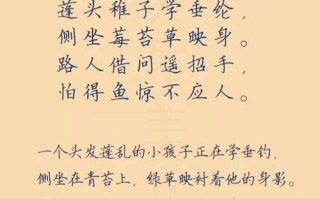 蓬头稚子学垂纶，
侧坐莓苔草映身。
路人借问遥招手，
怕得鱼惊不应人。
一个头发蓬乱的小孩子正在学垂钓，
侧坐在青苔上，绿草映衬着他的身影。